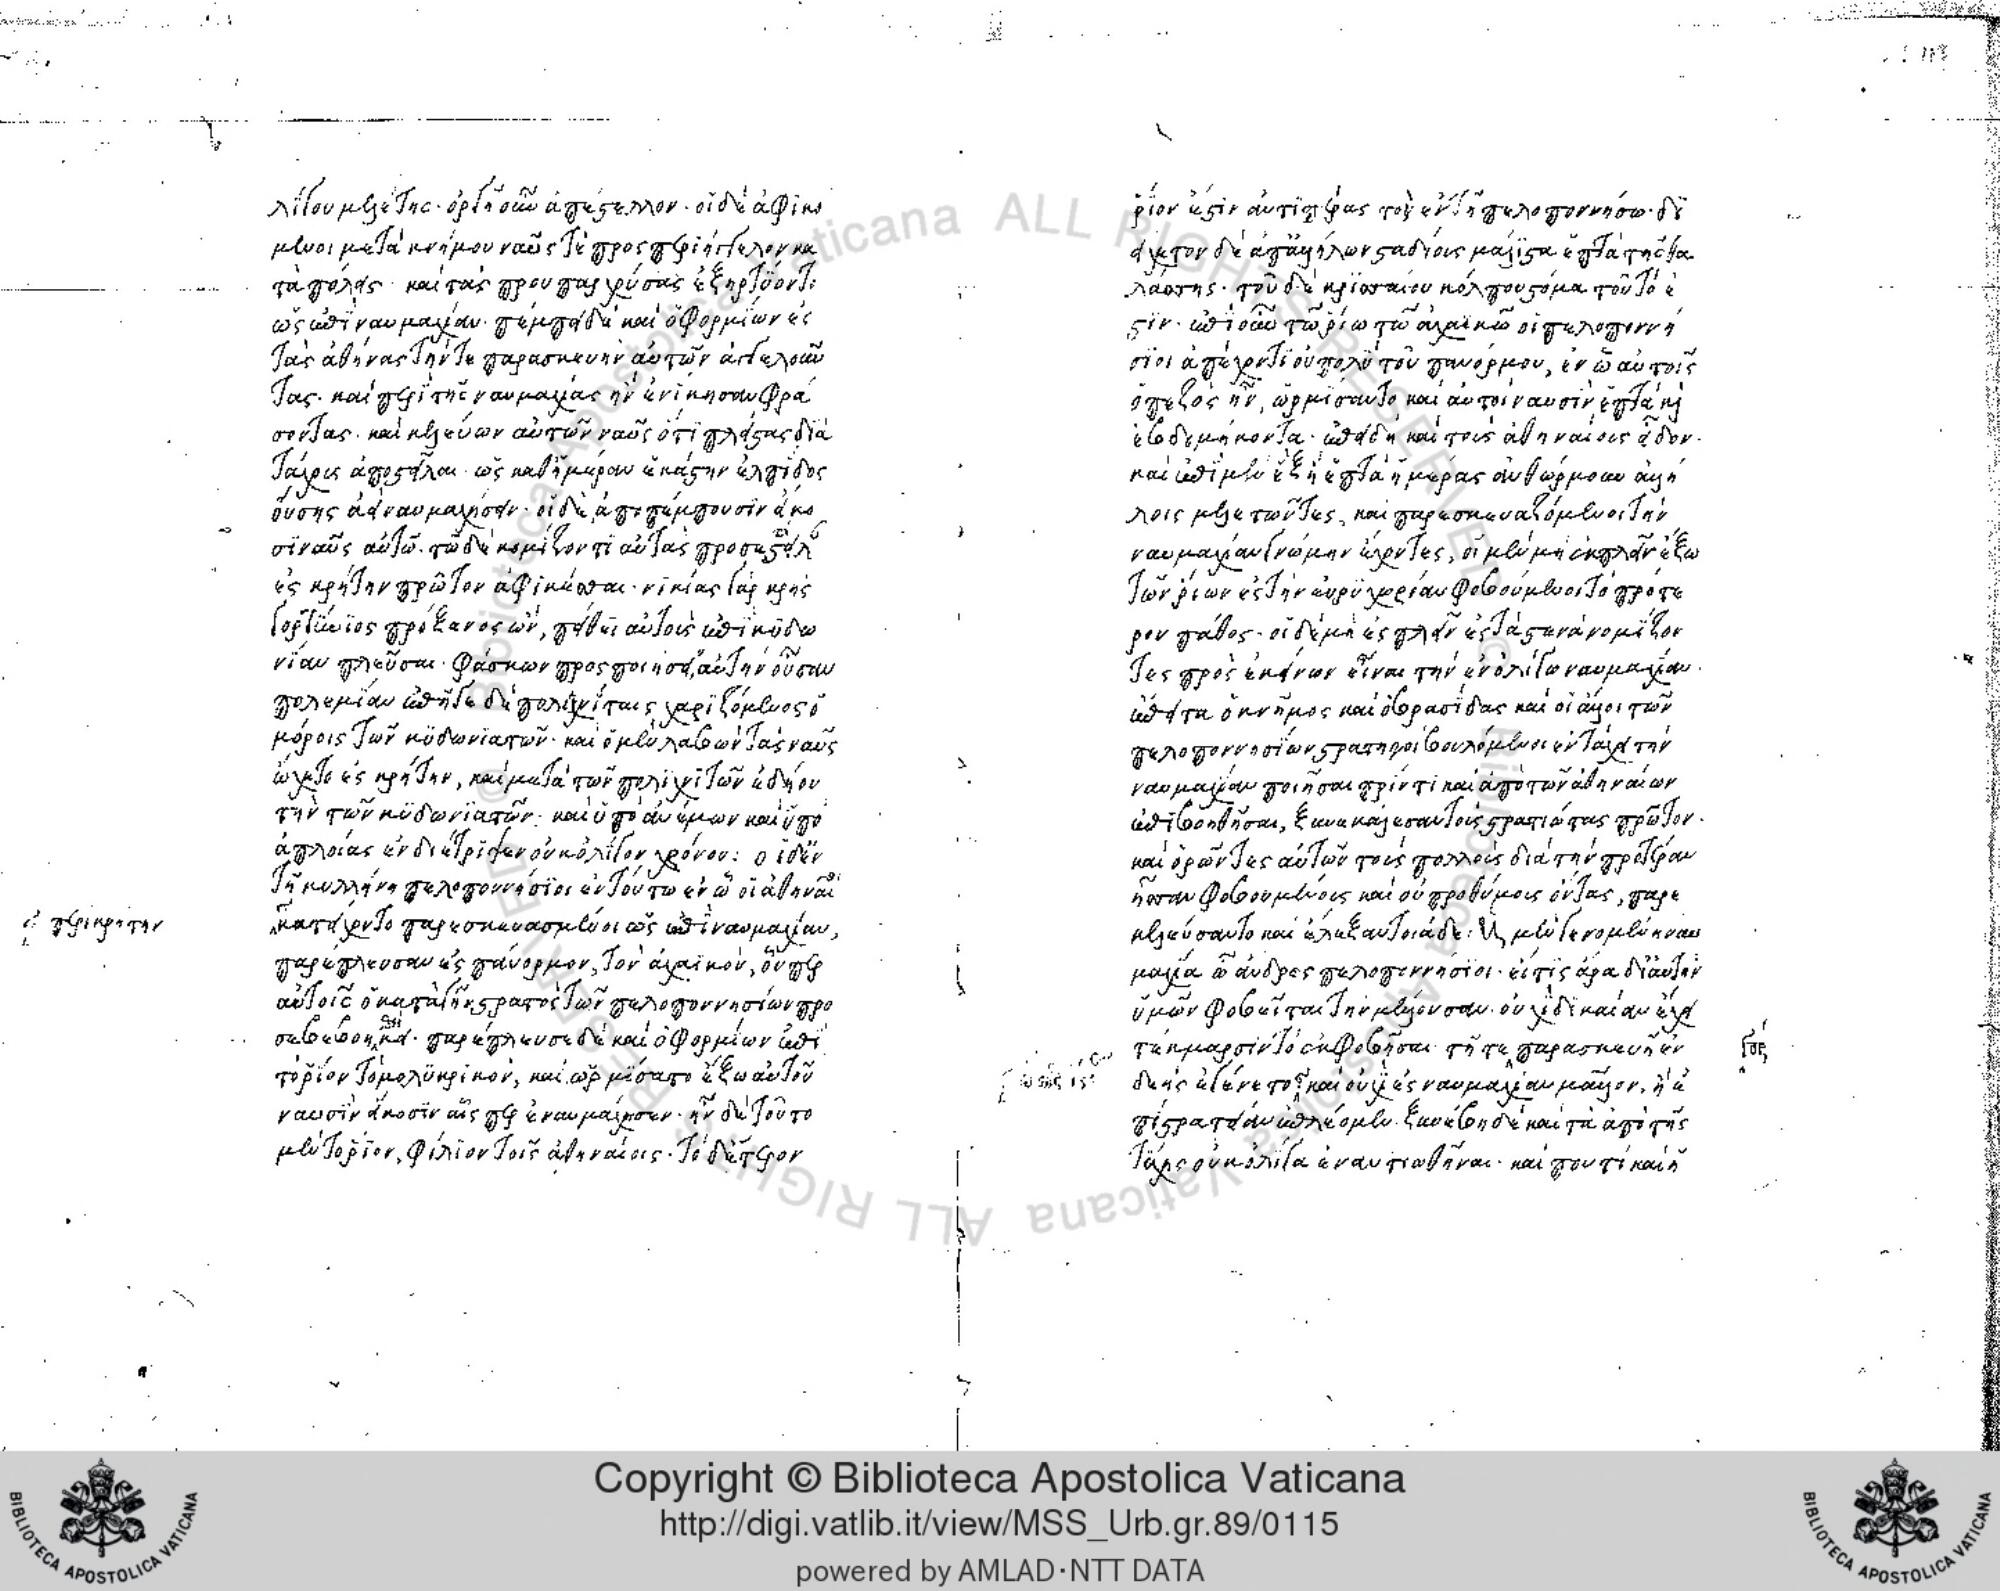 λίγου μελέτης· ὀργῆ οὖν ἀπέστελλον· οἱ δὲ ἀφικό
μενοι μετὰ κνήμου ναῦς τὲ προσπεριήγγελον κα
τὰ πόλεις· καὶ τὰς προυπαρχούσας ἐξηρτύοντο
ὡς ἐπὶ ναυμαχίαν· πέμπει δὲ καὶ ὁ φορμίων ἐς
τὰς ἀθήνας τήν τε παρασκευὴν αὐτῶν ἀγγελοῦν
τας· καὶ περὶ τῆς ναυμαχίας ἣν ἐνίκησαν φρά
σοντας· καὶ κελεύων αὐτῶν ναῦς ὅτι πλείστας διὰ
τάχους ἀποστεῖλαι· ὡς καθ' ἡμέραν ἑκάστην ἐλπίδος
οὔσης ἀεὶ ναυμαχήσειν· οἱ δὲ ἀποπέμπουσιν εἴκο
σι ναῦς αὐτῶ· τῶ δὲ κομίζοντι αὐτὰς προσέστειλαν
ἐς κρήτην πρῶτον ἀφικέσθαι· νικίας γὰρ κρὴς
γορτύνιος πρόξενος ὢν, πείθει αὐτοὺς ἐπὶ κυδω
νίαν πλεῦσαι· φάσκων προσποιήσειν αὐτὴν οὖσαν
πολεμίαν ἐπῆγε δὲ πολιχνίταις χαριζόμενος ὁ
μόροις τῶν κυδωνιατῶν· καὶ ὁ μὲν λαβὼν τὰς ναῦς
ὤχετο ἐς κρήτην, καὶ μετὰ τῶν πολιχνιτῶν ἐδήου
τὴν τῶν κυδωνιατῶν· καὶ ὑπὸ ἀνέμων καὶ ὑπὸ
ἀπλοίας ἐνδιέτριψεν οὐκ ὀλίγον χρόνον: οἱ δ' ἐν
τῆ κυλλήνη πελοποννήσιοι ἐν τούτω ἐν ὧ οἱ ἀθηναῖοι
περὶ κρήτην
κατείχοντο παρεσκευασμένοι ὡς ἐπὶ ναυμαχίαν,
παρέπλευσαν ἐς πάνορμον, τὸν ἀχαϊκὸν, οὗπερ
αὐτοῖς ὁ κατὰ γῆν στρατὸς τῶν πελοποννησίων προ
σεβεβοηθήκει· παρέπλευσε δὲ καὶ ὁ φορμίων ἐπὶ
τὸ ῥίον τὸ μολυκρικὸν, καὶ ὡρμίσατο ἔξω αὐτοῦ
ναυσὶν εἴκοσιν αἷς περ ἐναυμάχησεν· ἦν δὲ τοῦτο
μὲν τὸ ῥίον, φίλιον τοῖς ἀθηναίοις· τὸ δ' ἕτερον
ῥίον ἐστὶν ἀντιπέρας τὸ ἐν τῆ πελοποννήσω· δι
είχετον δὲ ἀπ' ἀλλήλων σταδίους μάλιστα ἑπτὰ τῆς θα
λάσσης· τοῦ δὲ κρισσαίου κόλπου στόμα τοῦτό ἐ
στιν· ἐπὶ οὖν τῶ ῥίω τῶ ἀχαϊκῶ οἱ πελοποννή
σιοι ἀπέχοντι οὐ πολὺ τοῦ πανόρμου, ἐν ὧ αὐτοῖς
ὁ πεζὸς ἦν, ὡρμίσαντο καὶ αὐτοὶ ναυσὶν ἑπτὰ καὶ
ἑβδομήκοντα· ἐπειδὴ καὶ τοὺς ἀθηναίους εἶδον·
καὶ ἐπὶ μὲν ἓξ ἢ ἑπτὰ ἡμέρας ἀνθώρμουν ἀλλή
λοις μελετῶντες, καὶ παρασκευαζόμενοι τὴν
ναυμαχίαν γνώμην ἔχοντες, οἱ μὲν μὴ ἐκπλεῖν ἔξω
τῶν ῥίων ἐς τὴν εὐρυχωρίαν φοβούμενοι τὸ πρότε
ρον πάθος· οἱ δὲ μὴ ἐσπλεῖν ἐς τὰ στενὰ νομίζον
τες πρὸς ἐκείνων εἶναι τὴν ἐν ὀλίγω ναυμαχίαν·
ἔπειτα ὁ κνῆμος καὶ ὁ βρασίδας καὶ οἱ ἄλλοι τῶν
πελοποννησίων στρατηγοὶ βουλόμενοι ἐν τάχει τὴν
ναυμαχίαν ποιῆσαι πρίν τι καὶ ἀπὸ τῶν ἀθηναίων
ἐπιβοηθῆσαι, ξυνεκάλεσαν τοὺς στρατιώτας πρῶτον·
καὶ ὁρῶντες αὐτῶν τοὺς πολλοὺς διὰ τὴν προτέραν
ἧσσαν φοβουμένους καὶ οὐ προθύμους ὄντας, παρε
κελεύσαντο καὶ ἔλεξαν τοιάδε: Ἡ μὲν γενομένη ναυ
μαχία ὦ ἄνδρες πελοποννήσιοι· εἴ τις ἄρα δι' αὐτὴν
ὑμῶν φοβεῖται τὴν μέλλουσαν· οὐχὶ δικαίαν ἔχει
τέκμαρσιν τὸ ἐκφοβῆσαι· τῆ τε παρασκευῆ ἐν
δεὴς ἐγένετο καὶ οὐχὶ ἐς ναυμαχίαν μᾶλλον, ἢ ἐ
πὶ στρατείαν ἐπλέομεν· ξυνέβη δὲ καὶ τὰ ἀπὸ τῆς
τύχης οὐκ ὀλίγα ἐναντιωθῆναι· καί που τι καὶ ἡ
Copyright © Biblioteca Apostolica Vaticana
http://digi.vatlib.it/view/MSS_Urb.gr.89/0115
powered by AMLAD·NTT DATA